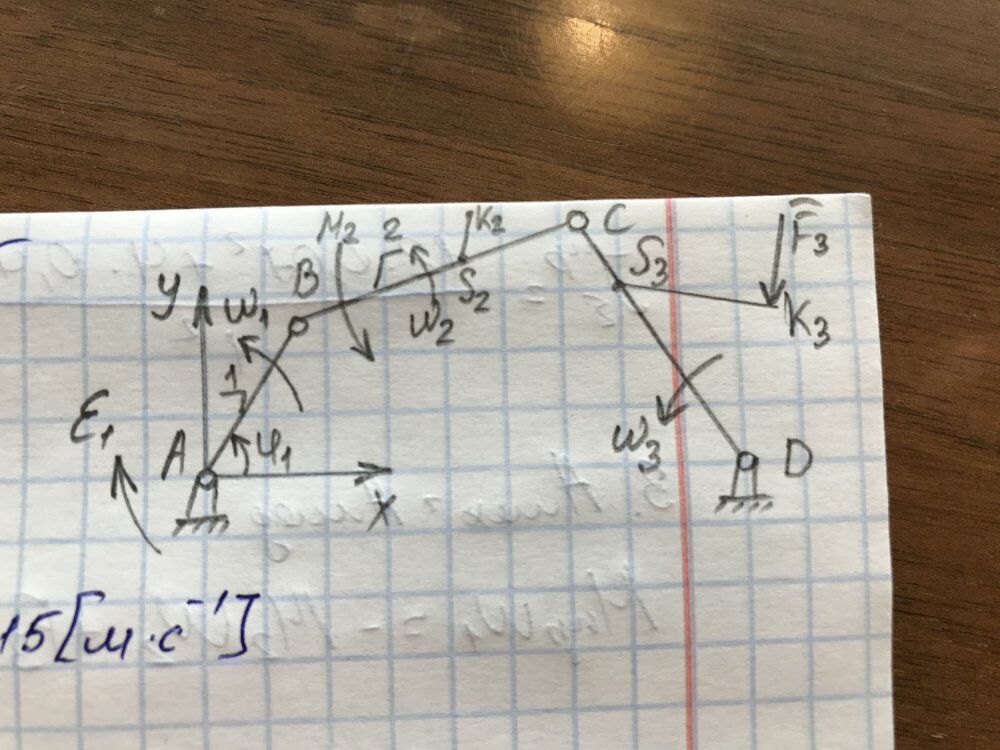 M₂ 2 K₂ C F̅₃
B S₂ S₃
y ω₁ ω₂ K₃
1
ε₁ A φ₁ ω₃ D
x
15[м·с⁻¹]